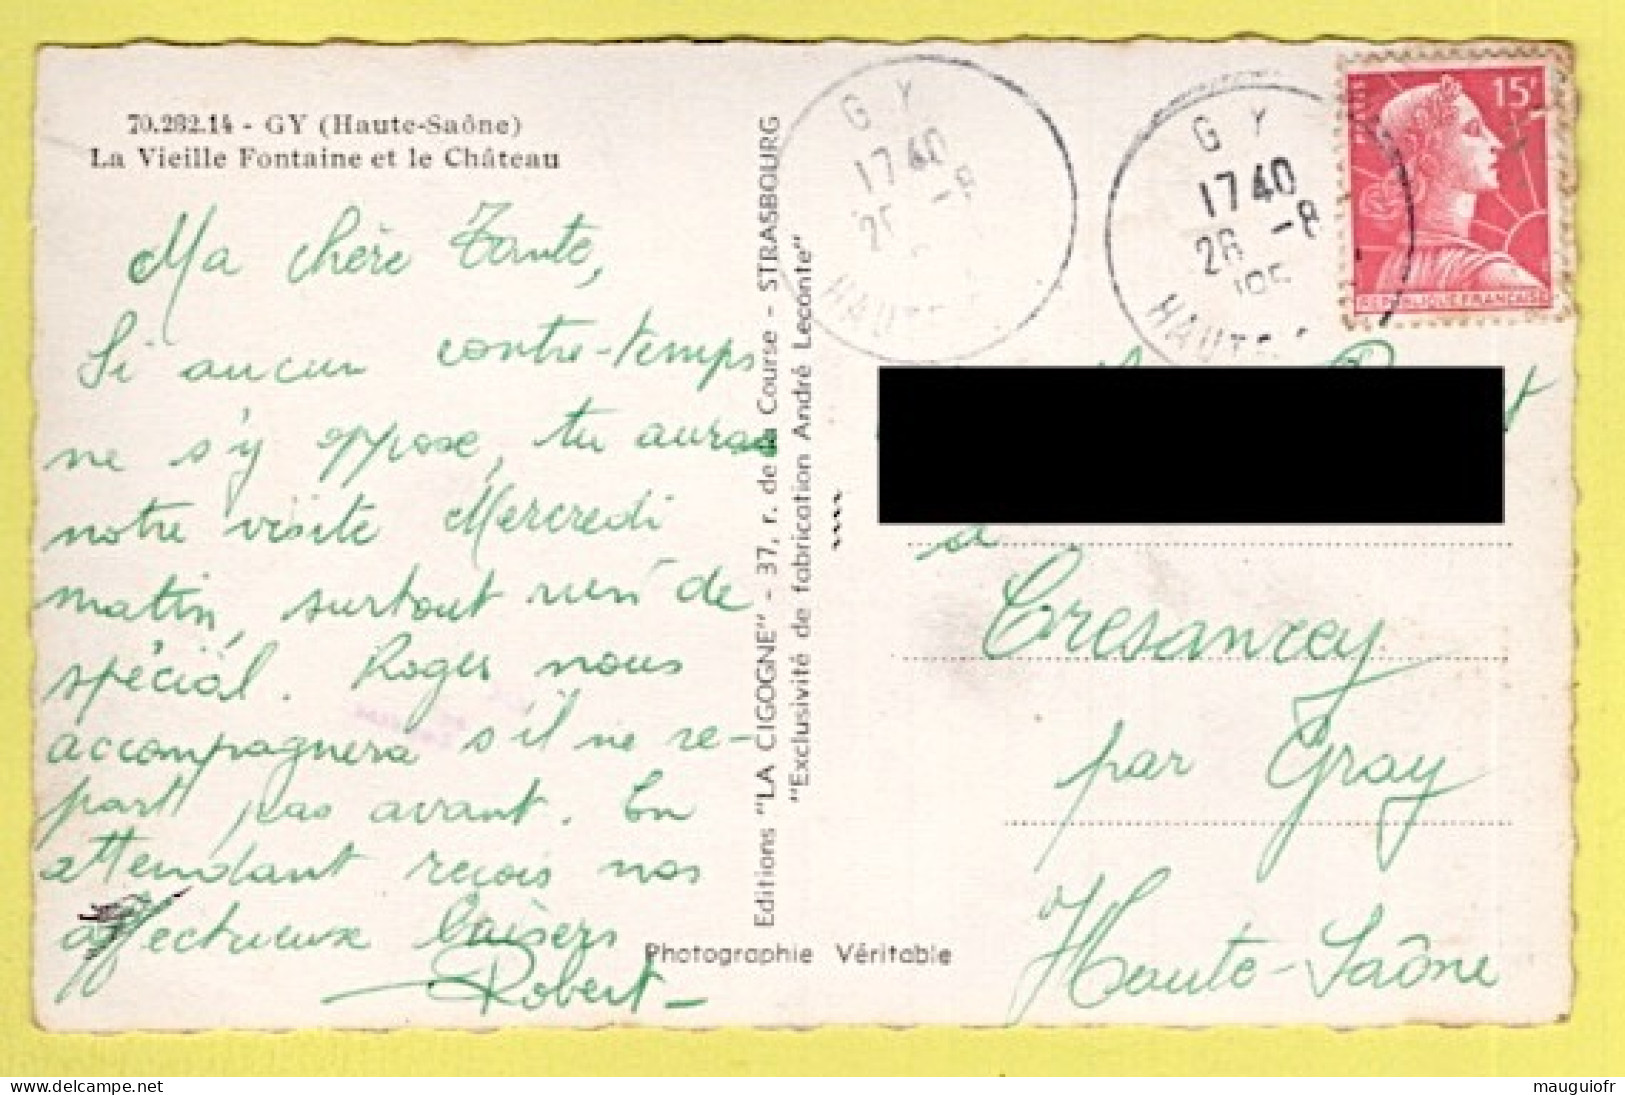 70.282.14 - GY (Haute-Saône)
La Vieille Fontaine et le Château
Ma chère Tante,
Si aucun contre-temps
ne s'y oppose, tu auras
notre visite Mercredi
matin, surtout rien de
spécial. Roger nous
accompagnera s'il ne re-
part pas avant. En
attendant reçois nos
affectueux baisers
Robert
Editions "LA CIGOGNE" - 37, r. de la Course - STRASBOURG
"Exclusivité de fabrication André Leconte"
Photographie Véritable
GY
1740
26 -8
HAUTE
GY
1740
26 -8
195
HAUTE
POSTES
15F
REPUBLIQUE FRANÇAISE
à
Cresancey
par Gray
Haute-Saône
mauguiofr